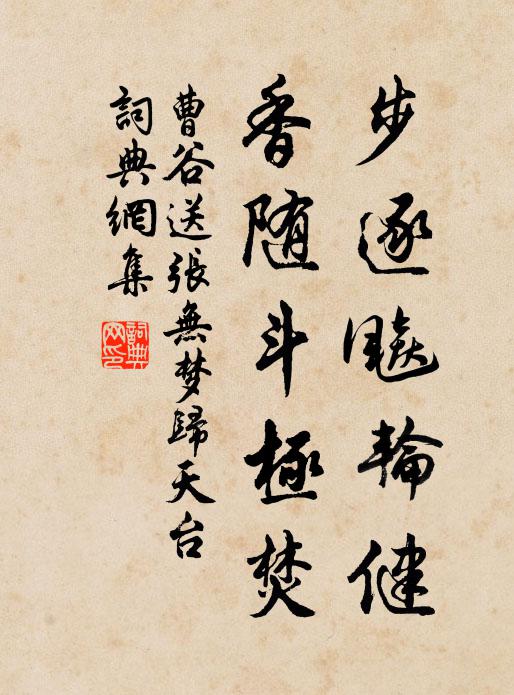 步逐飈輪健
香随斗極焚
曹谷送張無梦歸天台
詞典網集
詞典網印